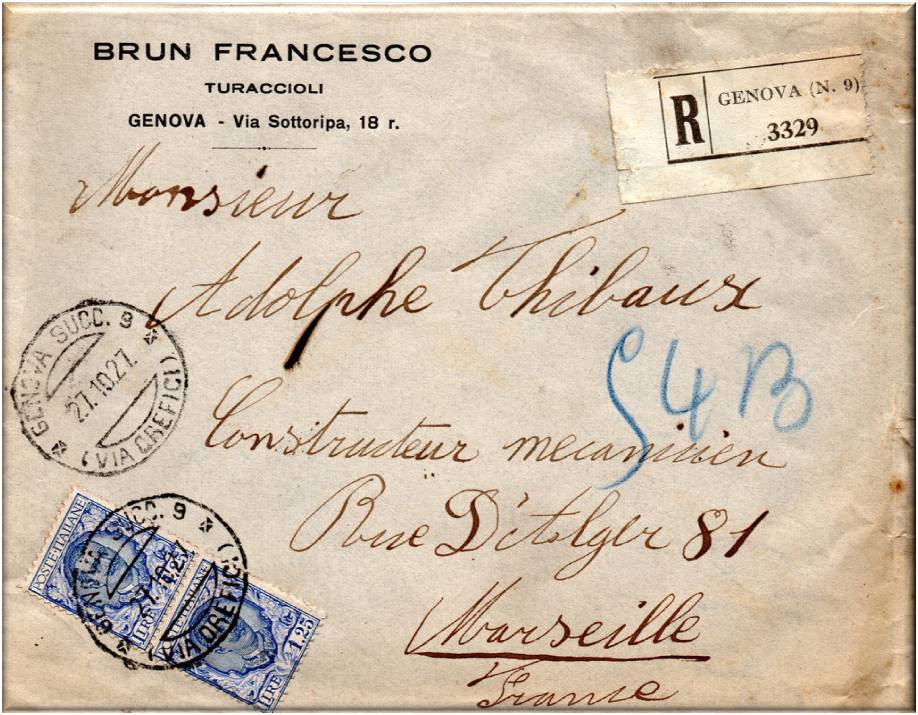 BRUN FRANCESCO
TURACCIOLI
GENOVA - Via Sottoripa, 18 r.
R
GENOVA (N. 9)
3329
Monsieur
Adolphe Thibaux
54B
Constructeur mecanicien
Rue D'Alger 81
Marseille
France
GENOVA SUCC. 9
27.10.27.
(VIA OREFICI)
POSTE ITALIANE
LIRE
LIRE 1.25
GENOVA SUCC. 9
27.10.27.
(VIA OREFICI)